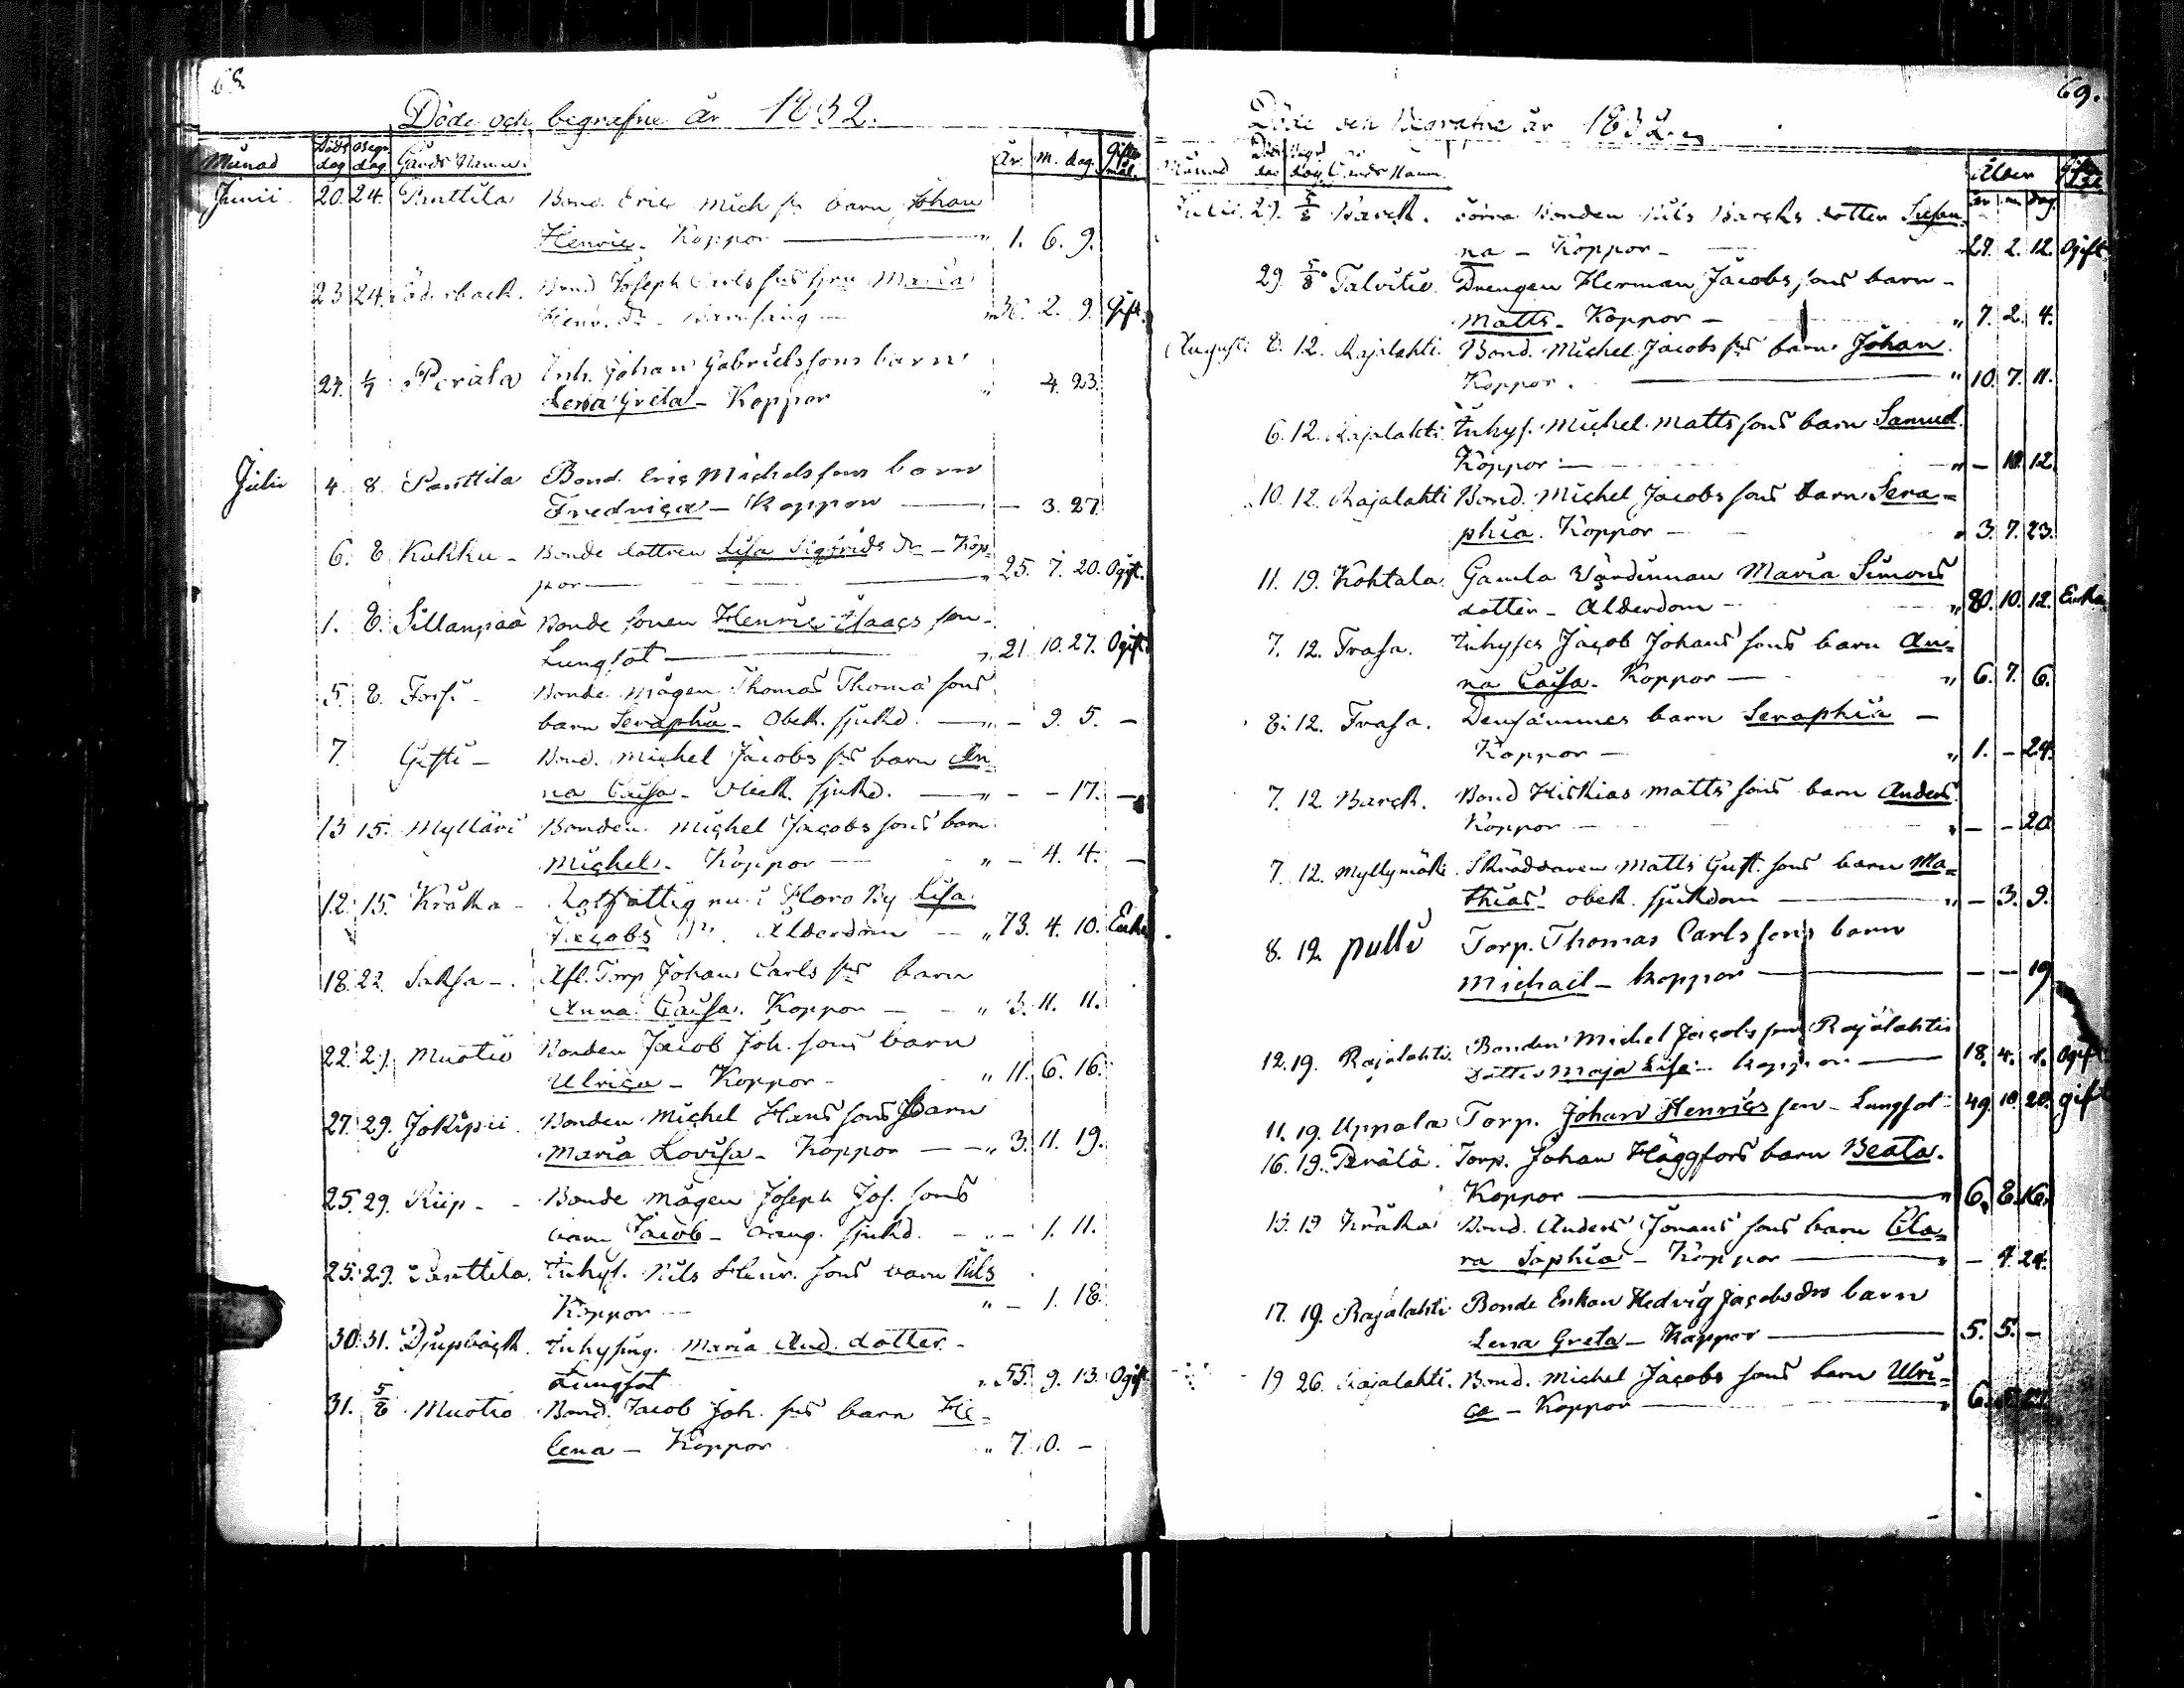 68
Döde och begrafne år 1832.
Månad Döds dag Begr. dag Gårds Namn. År. M. dag. Gifter mål.
Junii 20. 24. Panttila Bond. Eric Mich. sns barn Johan
Henric - Koppor — " 1. 6. 9.
23 24. Bond. Joseph Carls sns hru Maria
Henr. dr - Barnsäng — " 36. 2. 9. Gift.
24. 1/7 Perälä Inh. Johan Gabrielssons barn
Lena Greta - Koppor " 4. 23.
Julii 4. 8. Panttila Bond. Eric Michelssons barn
Fredrica - Koppor — - 3. 27.
6. 8. Kukku - Bonde dottren Lisa Sigfrids dr - Kop-
por — " 25. 7. 20. Ogift.
1. 8. Sillanpää Bonde sonen Henric Isaacs son -
Lungsot — " 21. 10. 27. Ogift.
5. 8. Forsi - Bonde mågen Thomas Thomæ sons
barn Seraphia - Obek. sjukd. — " - 9. 5. -
7. Gifti - Bond. Michel Jacobs sns barn An-
na Caisa - Obek. sjukd. — " - - 17. -
13 15. Mylläri Bonden Michel Jacobs sons barn
Michel - Koppor — " - 4. 4. -
12. 15. Kråka - Rotfattig nu i Floro By Lisa
Jacobs Dr. Ålderdom — " 73. 4. 10. Enka
18. 22. Saksa - Afl. Torp Johan Carls sns barn
Anna Caisa. Koppor - - " 3. 11. 11.
22. 29. Muotio Bonden Jacob Joh. sons barn
Ulrica - Koppor - " 11. 6. 16.
27. 29. Jokipii Bonden Michel Hans sons Barn
Maria Lovisa - Koppor — " 3. 11. 19.
25. 29. Riip - - Bonde mågen Joseph Jos. sons
barn Jacob - sjukd. - " - 1. 11.
25. 29. Panttila. Inhys. Nils Henr. sons barn Nils
Koppor — " - 1. 18.
30. 31. Djupbäck. Inhysing. Maria And. dotter -
Lungsot " 55. 9. 13. Ogift
31. 5/8 Muotio Bond. Jacob Joh. sns barn He-
lena - Koppor " 7. 10. -
69.
Döde och Begrafne år 1832.
Månad Döds dag Begr. dag Gårds Namn. Ålder Gifter mål
år m dag
Julii. 29. 5/8 Barck. Förra Bonden Nils Barcks dotter Susan-
na - Koppor - 29. 2. 12. Ogift
29. 5/8 Talvitie. Drengen Herman Jacobs sons barn -
Matts - Koppor - " 7. 2. 4.
Augusti 8. 12. Rajalahti. Bond. Michel Jacobs sns barn Johan.
Koppor. — " 10. 7. 11.
6. 12. Rajalahti Inhys. Michel Matts sons barn Samuel.
Koppor — " - 10. 12.
10. 12. Rajalahti Bond. Michel Jacobs sons barn Sera-
phia. Koppor - " 3. 7. 23.
11. 19. Kohtala. Gamla Värdinnan Maria Simons
dotter - Ålderdom - " 80. 10. 12. Enka
7. 12. Frasa. Inhyses Jacob Johans sons barn An-
na Caisa. Koppor — " 6. 7. 6.
8. 12. Frasa. Densammes barn Seraphia -
Koppor — " 1. - 24.
7. 12. Barck. Bond Hiskias Matts sons barn Anders.
Koppor — " - - 20
7. 12. Myllymäki. Skräddaren Matts Gust. sons barn Ma-
thias. obek. sjukdom — " - 3. 9.
8. 12. Pulli Torp. Thomas Carls sons barn
Michael - koppor — - - 19
12. 19. Rajalahti. Bonden Michel Jacobs sons Rajalahtis
Dotter Maja Lisa - koppor — 18. 4. Ogift
11. 19. Uppala Torp. Johan Henrics son - Lungsot - 49. 10. 20. gift
16. 19. Perälä. Torp. Johan Häggfors barn Beata.
Koppor — " 6. 8. 16.
13. 19 Kråka Bond. Anders Jonans sons barn Cla-
ra Sophia - Koppor — " - 4. 24.
17. 19. Rajalahti Bonde Enkan Hedvig Jacobs drs barn
Lena Greta - Koppor — 5. 5. -
19 26. Rajalahti. Bond. Michel Jacobs sons barn Ulri-
ca - Koppor — " 6.